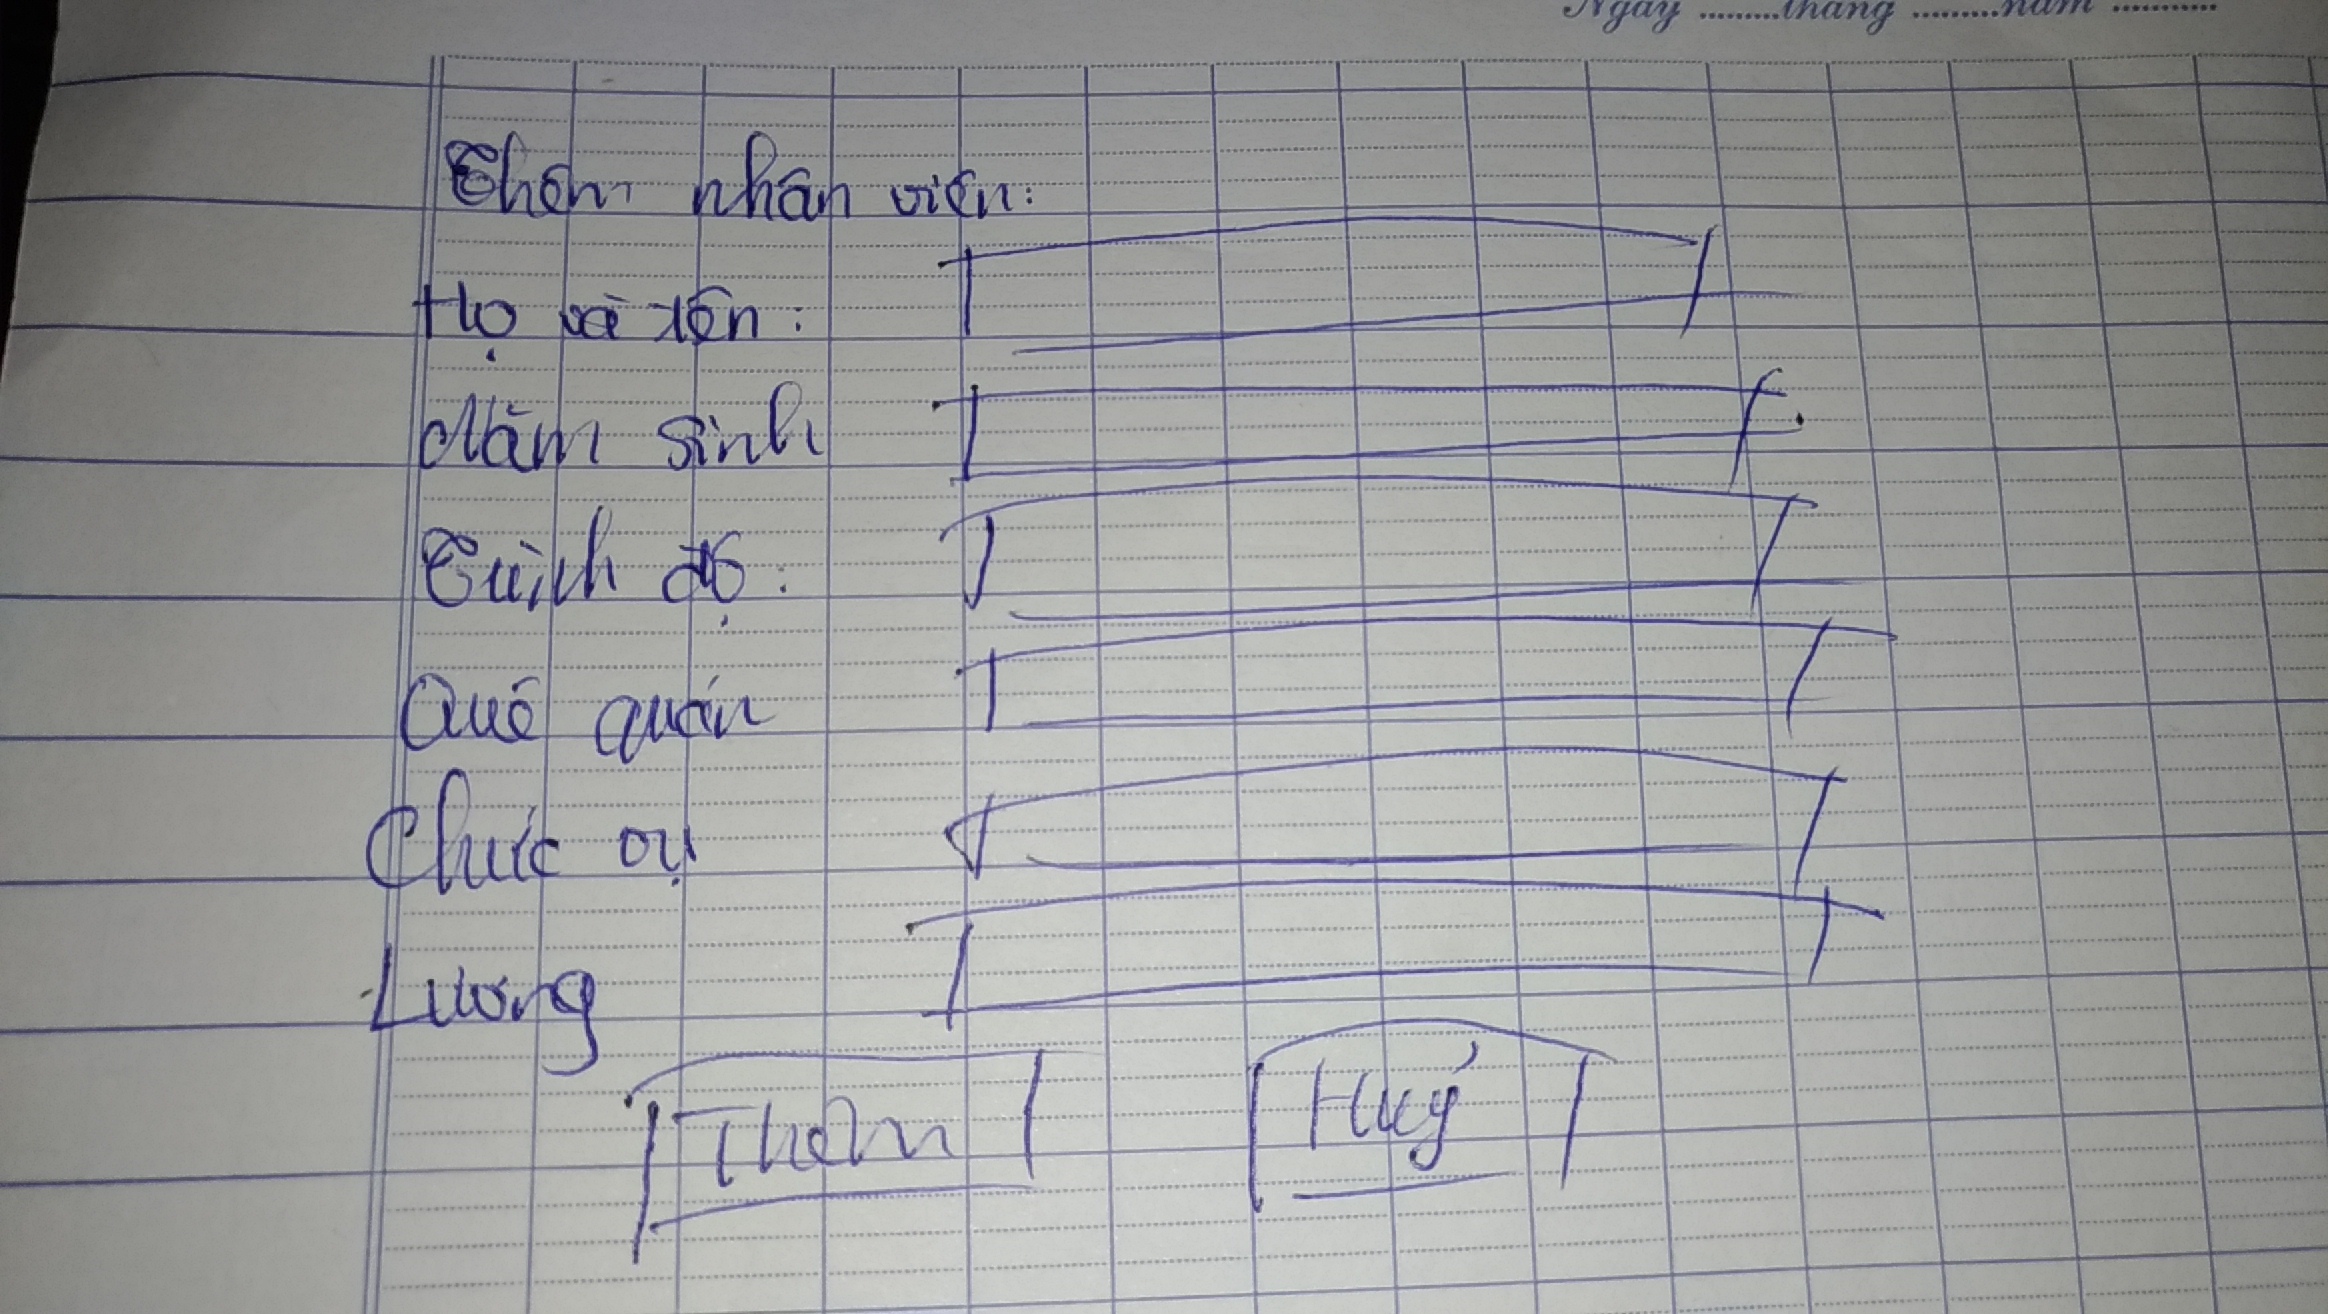 Ngày ........tháng .........năm ...........
Thêm nhân viên:
Họ và tên:
Năm sinh
Trình độ:
Quê quán
Chức vụ
Lương
Thêm Huỷ